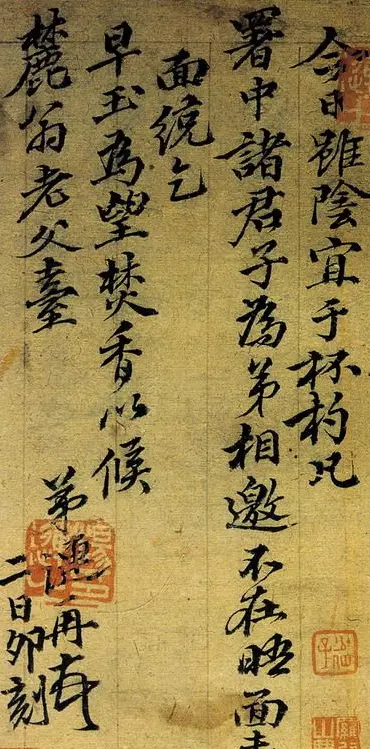 今日雖陰宜于杯杓凡
署中諸君子為弟相邀不在晤面
面統乞
早玉為望焚香以候
麓翁老父臺
弟再拜
二日卯刻